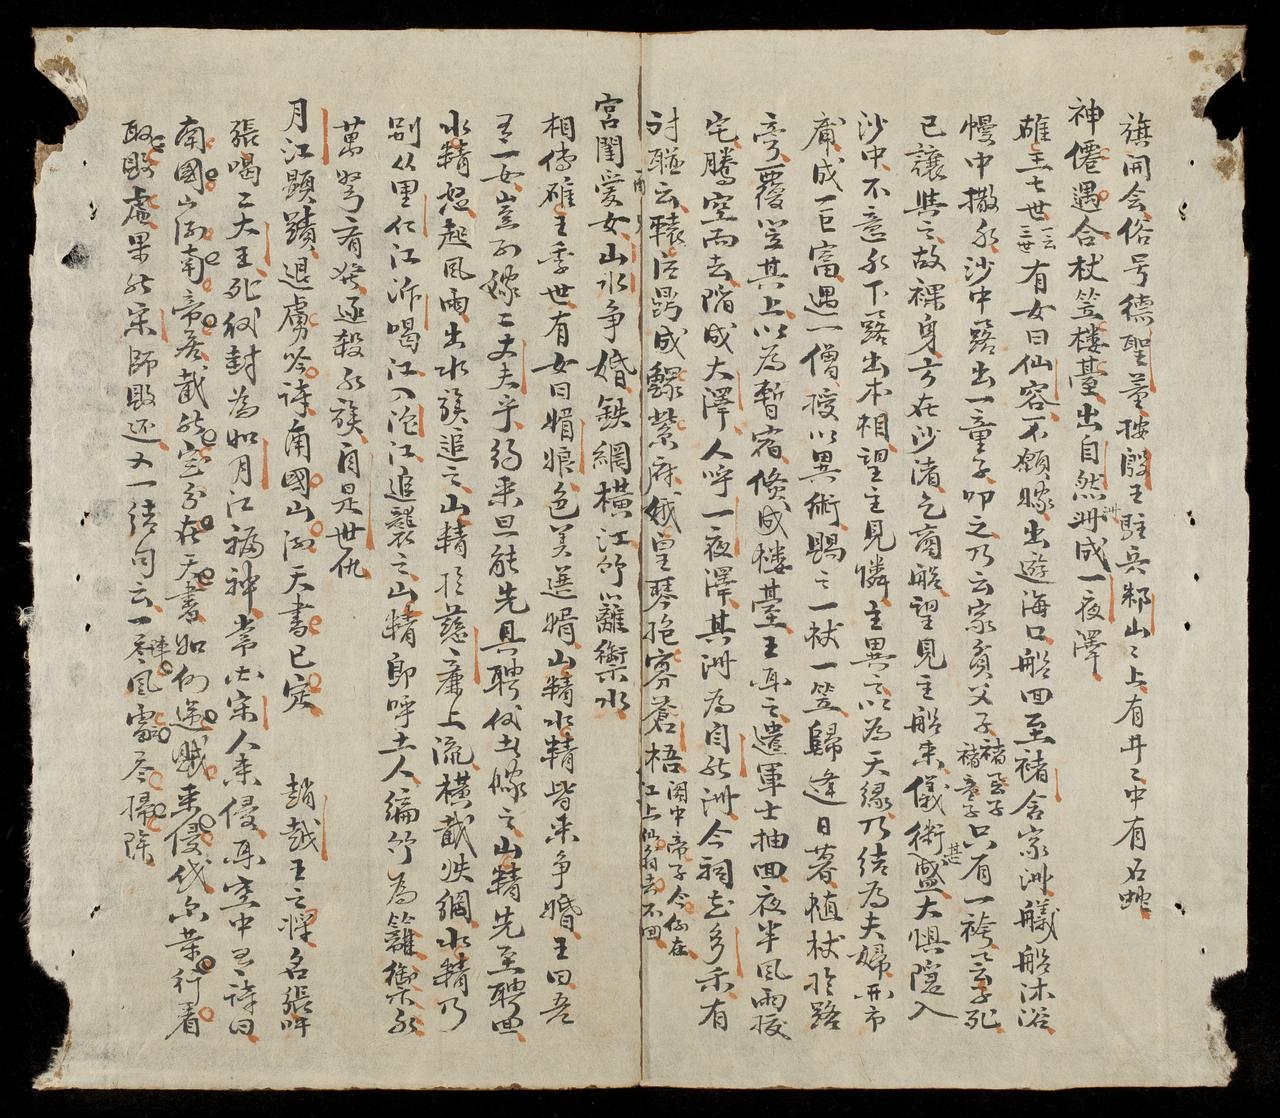 旗開会俗号德聖董按殷王駐兵鄒山〻上有井〻中有石蛇
神僊遇合杖笠楼臺出自然洲成一夜澤
雄王七世一云三世有女曰仙容不願嫁出遊海口船回至褚舍家洲艤船沐浴
幔中撒水沙中露出一童子叩之乃云家貧父子褚雲子褚童子只有一袴雲子死
已讓與之故裸身方在沙渚乞商船望見主船来儀衛甚盛大惧隱入
沙中不意水下露出本相望主見憐主異之以為天縁乃結為夫婦開市
庸成一巨富遇一僧授以異術賜之一杖一笠歸逢日暮植杖於路
旁覆笠其上以為暫宿倏成楼臺王耳之遣軍士抽回夜半風雨拔
宅騰空而去階成大澤人呼一夜澤其洲為自然洲今祠在多禾有
対聯云轅后鼎成騄禦麻娥皇琴抱寡蒼梧闕中帝子今何在江上仙翁去不回
宮閨愛女山水争婚鉄網横江竹籬禦水
相傳雄王季世有女曰媚娘色美選婿山精水精皆来争婚王曰吾
有一女豈可嫁二丈夫乎約来旦能先具聘仪者嫁之山精先至聘回
水精怒起風雨出水族追之山精於慈廉上流横截鉄網水精乃
別从里仁江沂喝江入沱江追襲之山精即呼土人編竹為籬禦水
萬弩齊發逐殺水族自是世仇
月江顯蹟退虜吟詩南國山河天書已定 趙越王之將名張吽
張喝二大王死後封為如月江福神常在宋人来侵耳空中有詩曰
南國山河南帝居截然定分在天書如何逆賊来侵伐尔等行看
取敗虛果然宋師敗还又一結句云一陣風雷尽掃除